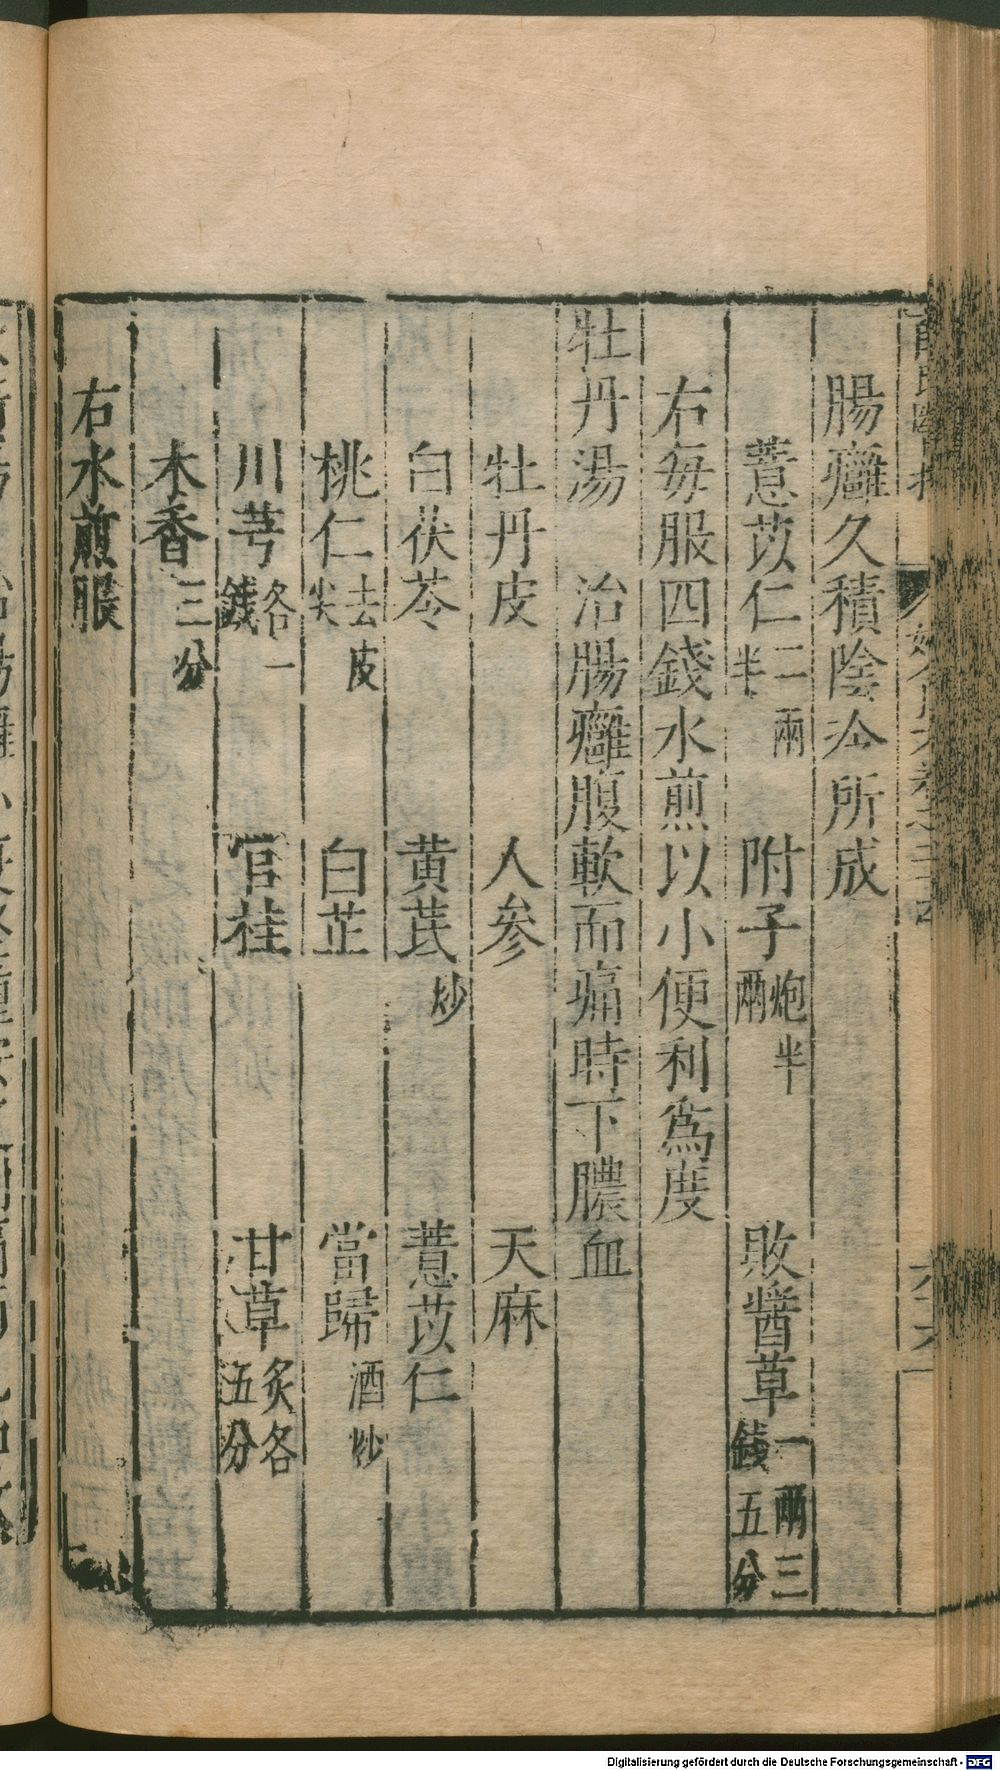 腸癰久積陰冷所成
薏苡仁二兩半　附子炮半兩　敗醬草一兩三錢五分
右每服四錢水煎以小便利為度
牡丹湯　治腸癰腹軟而痛時下膿血
牡丹皮　人參　天麻
白茯苓　黃芪炒　薏苡仁
桃仁去皮尖　白芷　當歸酒炒
川芎各一錢　官桂　甘草炙各五分
木香三分
右水煎服
Digitalisierung gefördert durch die Deutsche Forschungsgemeinschaft - DFG